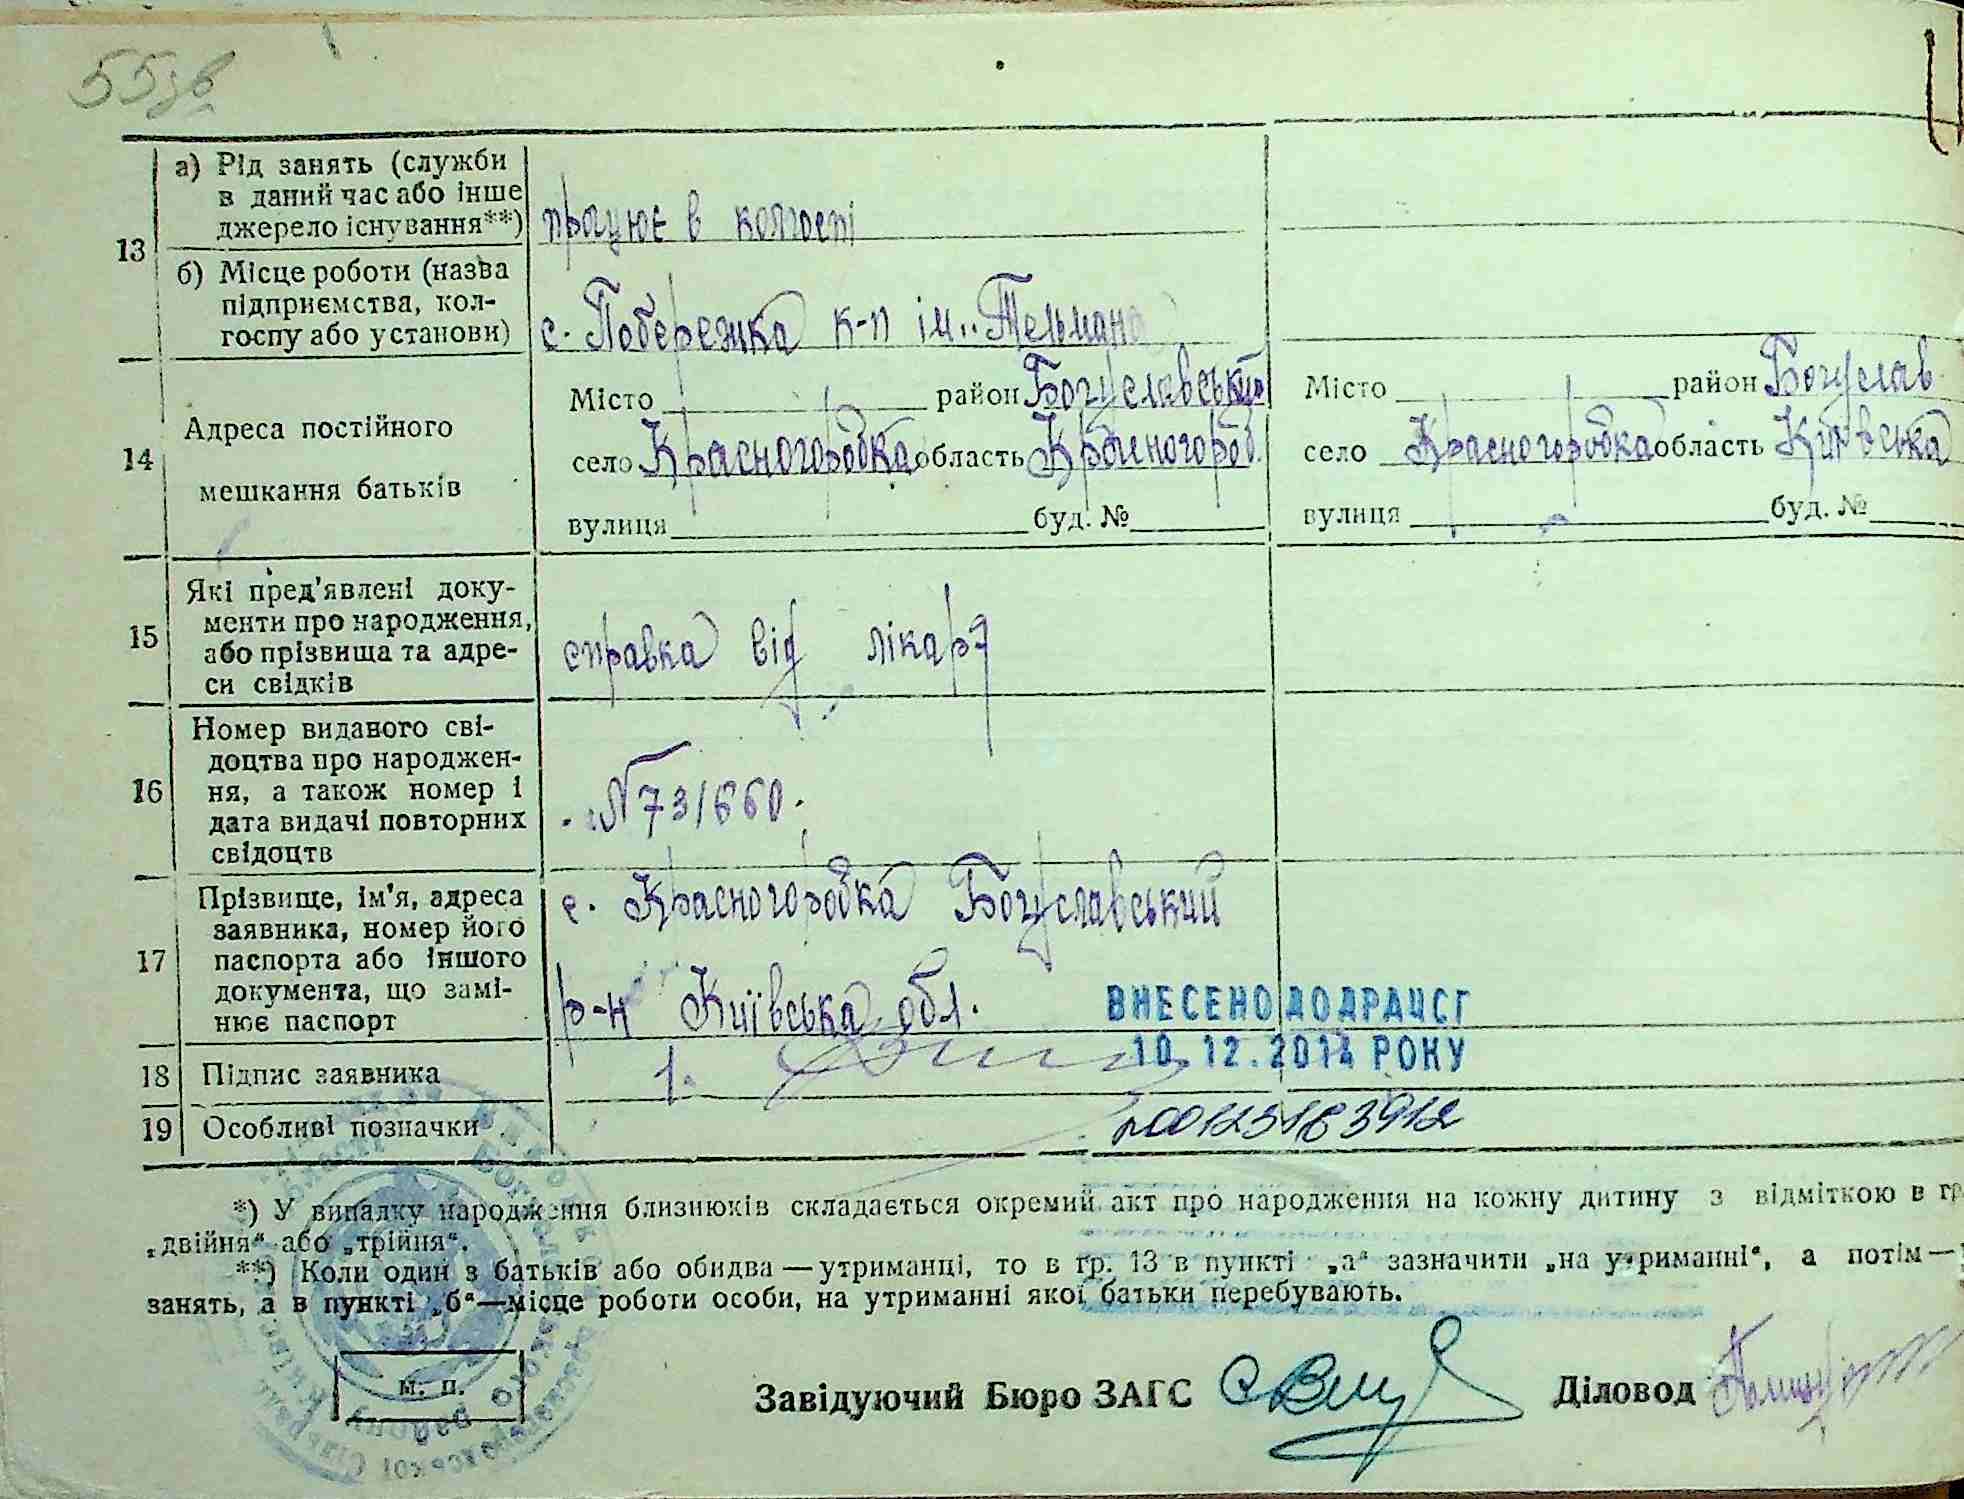 55зв
13
а) Рід занять (служби
в даний час або інше
джерело існування**)
працює в колгоспі
б) Місце роботи (назва
підприємства, кол-
госпу або установи)
с. Побережка к-п ім. Тельмана
14
Адреса постійного
мешкання батьків
Місто район Богуславський
село Красногородка область
вулиця буд. №
Місто район Богуслав
село Красногородка область Київська
вулиця буд. №
15
Які пред'явлені доку-
менти про народження,
або прізвища та адре-
си свідків
справка від лікаря
16
Номер виданого сві-
доцтва про народжен-
ня, а також номер і
дата видачі повторних
свідоцтв
№ 731660.
17
Прізвище, ім'я, адреса
заявника, номер його
паспорта або іншого
документа, що замі-
нює паспорт
с. Красногородка Богуславський
р-н Київська обл.
ВНЕСЕНО ДО ДРАЦСГ
10.12.2014 РОКУ
18 Підпис заявника
1.
19 Особливі позначки
00125163912
*) У випадку народження близнюків складається окремий акт про народження на кожну дитину з відміткою в гр
„двійня“ або „трійня“.
**) Коли один з батьків або обидва — утриманці, то в гр. 13 в пункті „а“ зазначити „на утриманні“, а потім —
занять, а в пункті „б“—місце роботи особи, на утриманні якої батьки перебувають.
м. п.
Завідуючий Бюро ЗАГС Діловод